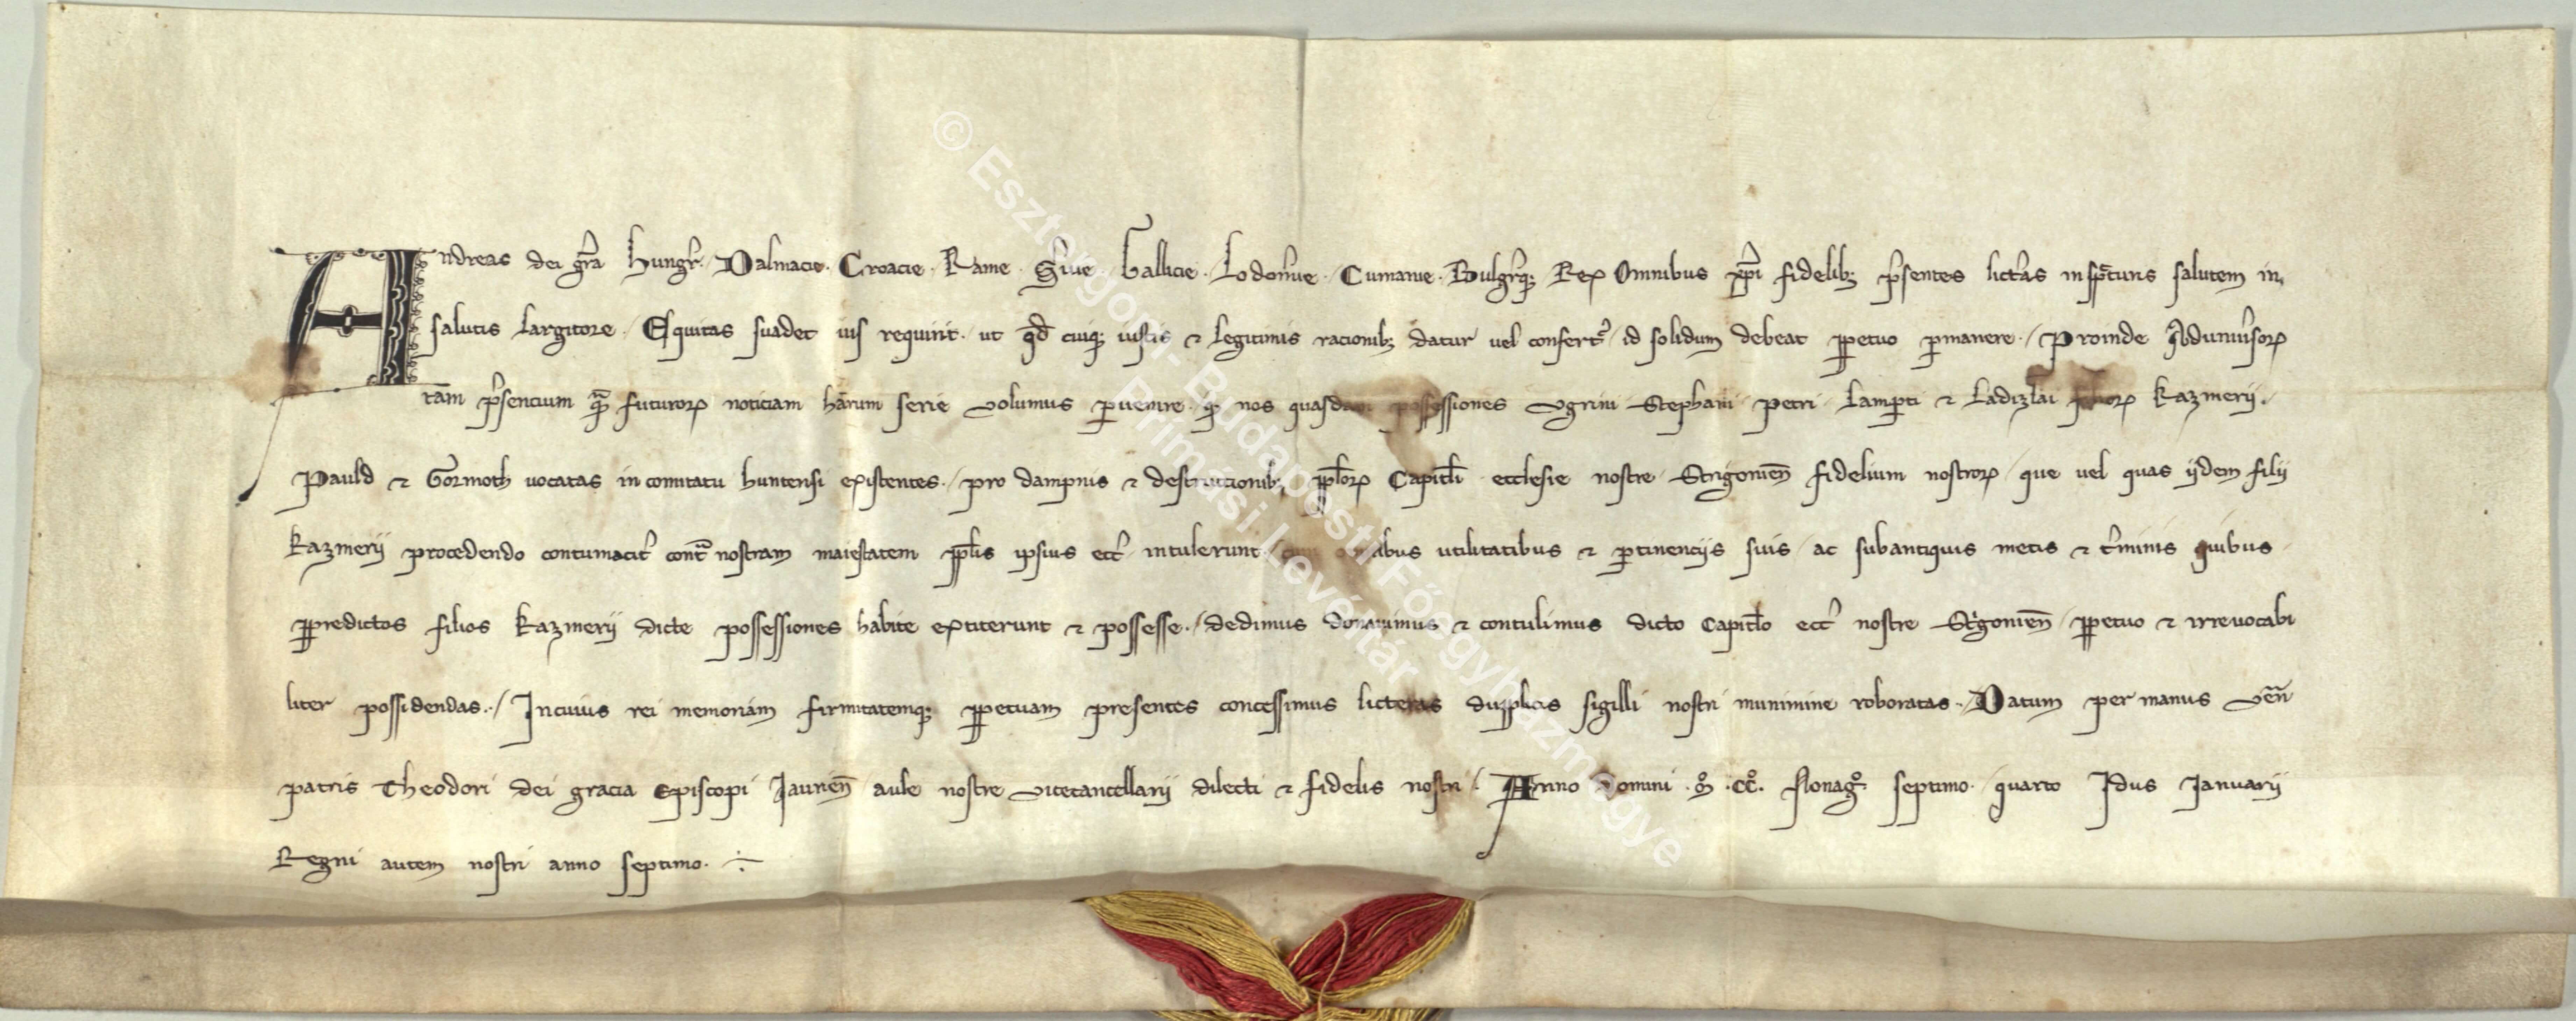 Andreas dei gr̄a Hungr̓. Dalmacie. Croacie. Rame. S̓uie. Gallicie. Lodom̓ie. Cumanie. Bulgr̓q; Rex Omnibus xp̄i fidelib; p̓sentes lict̓as insp̄cturis salutem in
salutis largitore. Equitas suadet ius requirit. ut qd̄ cuiq; iustis ⁊ legitimis racionib; datur uel confert᷒ id solidum debeat ꝑpetuo ꝑmanere. Proinde Ad uniu̓soꝝ
tam p̓sencium qᷓ futuroꝝ noticiam harum serie volumus ꝑuenire. ꝙ nos quasdam possessiones vgrini Stephani petri Lamꝑti ⁊ Ladizlai filioꝝ Kazmerii.
Pauld ⁊ Gormoth uocatas in comitatu huntensi existentes. pro dampnis ⁊ destruccionib; pp̄loꝝ Capit̄li ecclesie nostre Strigonien̄ fidelium nostroꝝ que uel quas ijdem filij
Kazmerij procedendo contumacit̓ cont̄ nostram maiestatem pp̄lis ipsius ecc̓ intulerunt cum omnibus utilitatibus ⁊ ꝑtinencijs suis ac sub antiquis metis ⁊ t̓minis quibus
ꝑ predictos filios Kazmerij dicte possessiones habite extiterunt ⁊ possesse. dedimus donauimus ⁊ contulimus dicto Capit̄lo ecc̓ nostre St̓gonien̄ ꝑpetuo ⁊ irreuocabi
liter possidendas. In cuius rei memoriam firmitatemq; ꝑpetuam presentes concessimus licteras dupplicis sigilli nostri munimine roboratas. Datum per manus ven̄
patris Theodori dei gracia Episcopi Jaurien̄ aule nostre vicecancellarij dilecti ⁊ fidelis nostri. Anno domini. mͦ. CCͦ. Nonagͦ septimo. quarto Idus Januarij
Regni autem nostri anno septimo.
© Esztergom-Budapesti Főegyházmegye
Prímási Levéltár